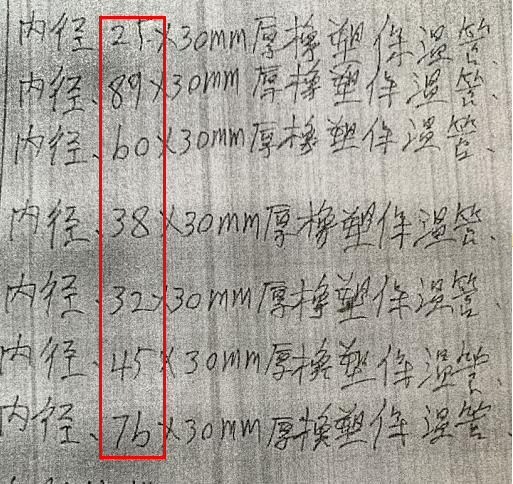 内径、25×30mm厚橡塑保温管
内径、89×30mm厚橡塑保温管、
内径、60×30mm厚橡塑保温管、
内径、38×30mm厚橡塑保温管、
内径、32×30mm厚橡塑保温管、
内径、45×30mm厚橡塑保温管、
内径、76×30mm厚橡塑保温管、